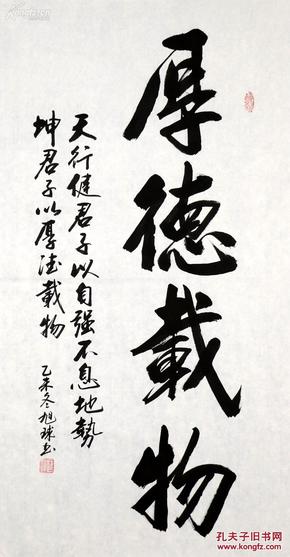 厚德載物
天行健君子以自强不息地勢
坤君子以厚德載物
乙未冬旭球书
孔夫子旧书网